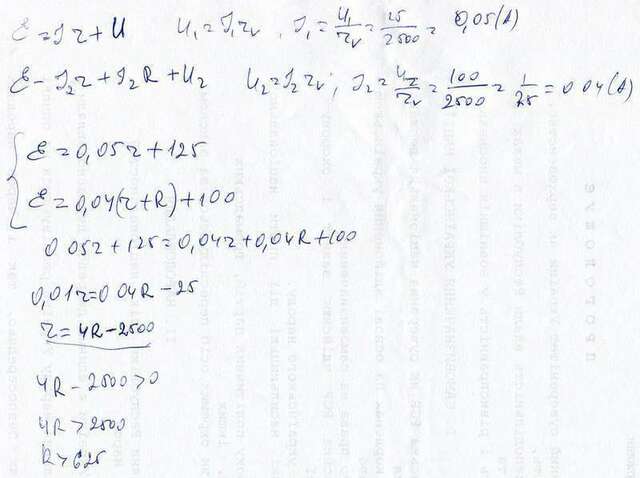 ℰ = Ir + U U₁ = I₁rᵥ, I₁ = U₁/rᵥ = 125/2500 = 0,05(A)
ℰ - I₂r + I₂R + U₂ U₂ = I₂rᵥ; I₂ = U₂/rᵥ = 100/2500 = 1/25 = 0 04(A)
ℰ = 0,05r + 125
ℰ = 0,04(r + R) + 100
0 05r + 125 = 0,04r + 0,04R + 100
0,01r = 0 04R - 25
r = 4R - 2500
4R - 2500 > 0
4R > 2500
R > 625